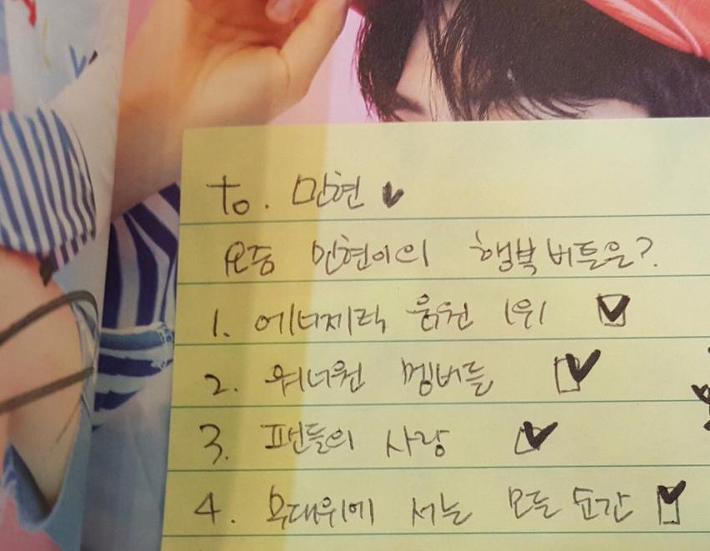 to. 민현
요즘 민현이의 행복버튼은?
1. 에너제틱 음원 1위
2. 워너원 멤버들
3. 팬들의 사랑
4. 무대위에 서는 모든 순간